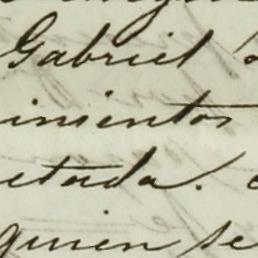 Gabriel
imientos
etada.
quien se